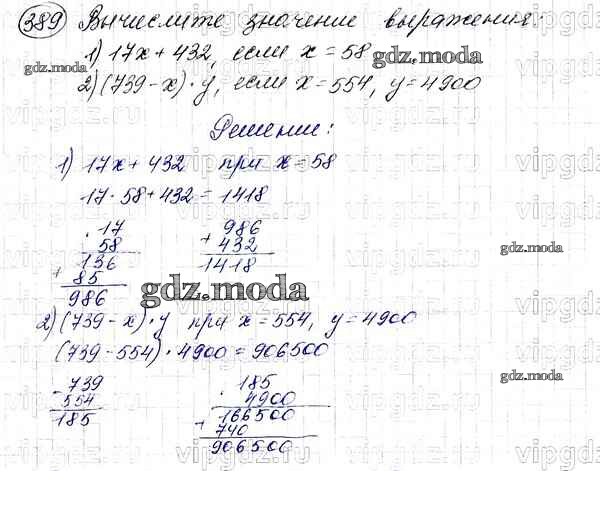 389 Вычислите значение выражения:
1) 17x + 432, если x = 58
gdz.moda
gdz.moda
2) (739 - x) · y, если x = 554, y = 4900
Решение:
1) 17x + 432 при x = 58
17 · 58 + 432 = 1418
· 17
58
136
+ 85
986
986
+ 432
1418
gdz.moda
gdz.moda
2) (739 - x) · y при x = 554, y = 4900
(739 - 554) · 4900 = 906500
gdz.moda
- 739
554
185
· 185
4900
+ 166500
740
906500
gdz.moda
vipgdz.ru